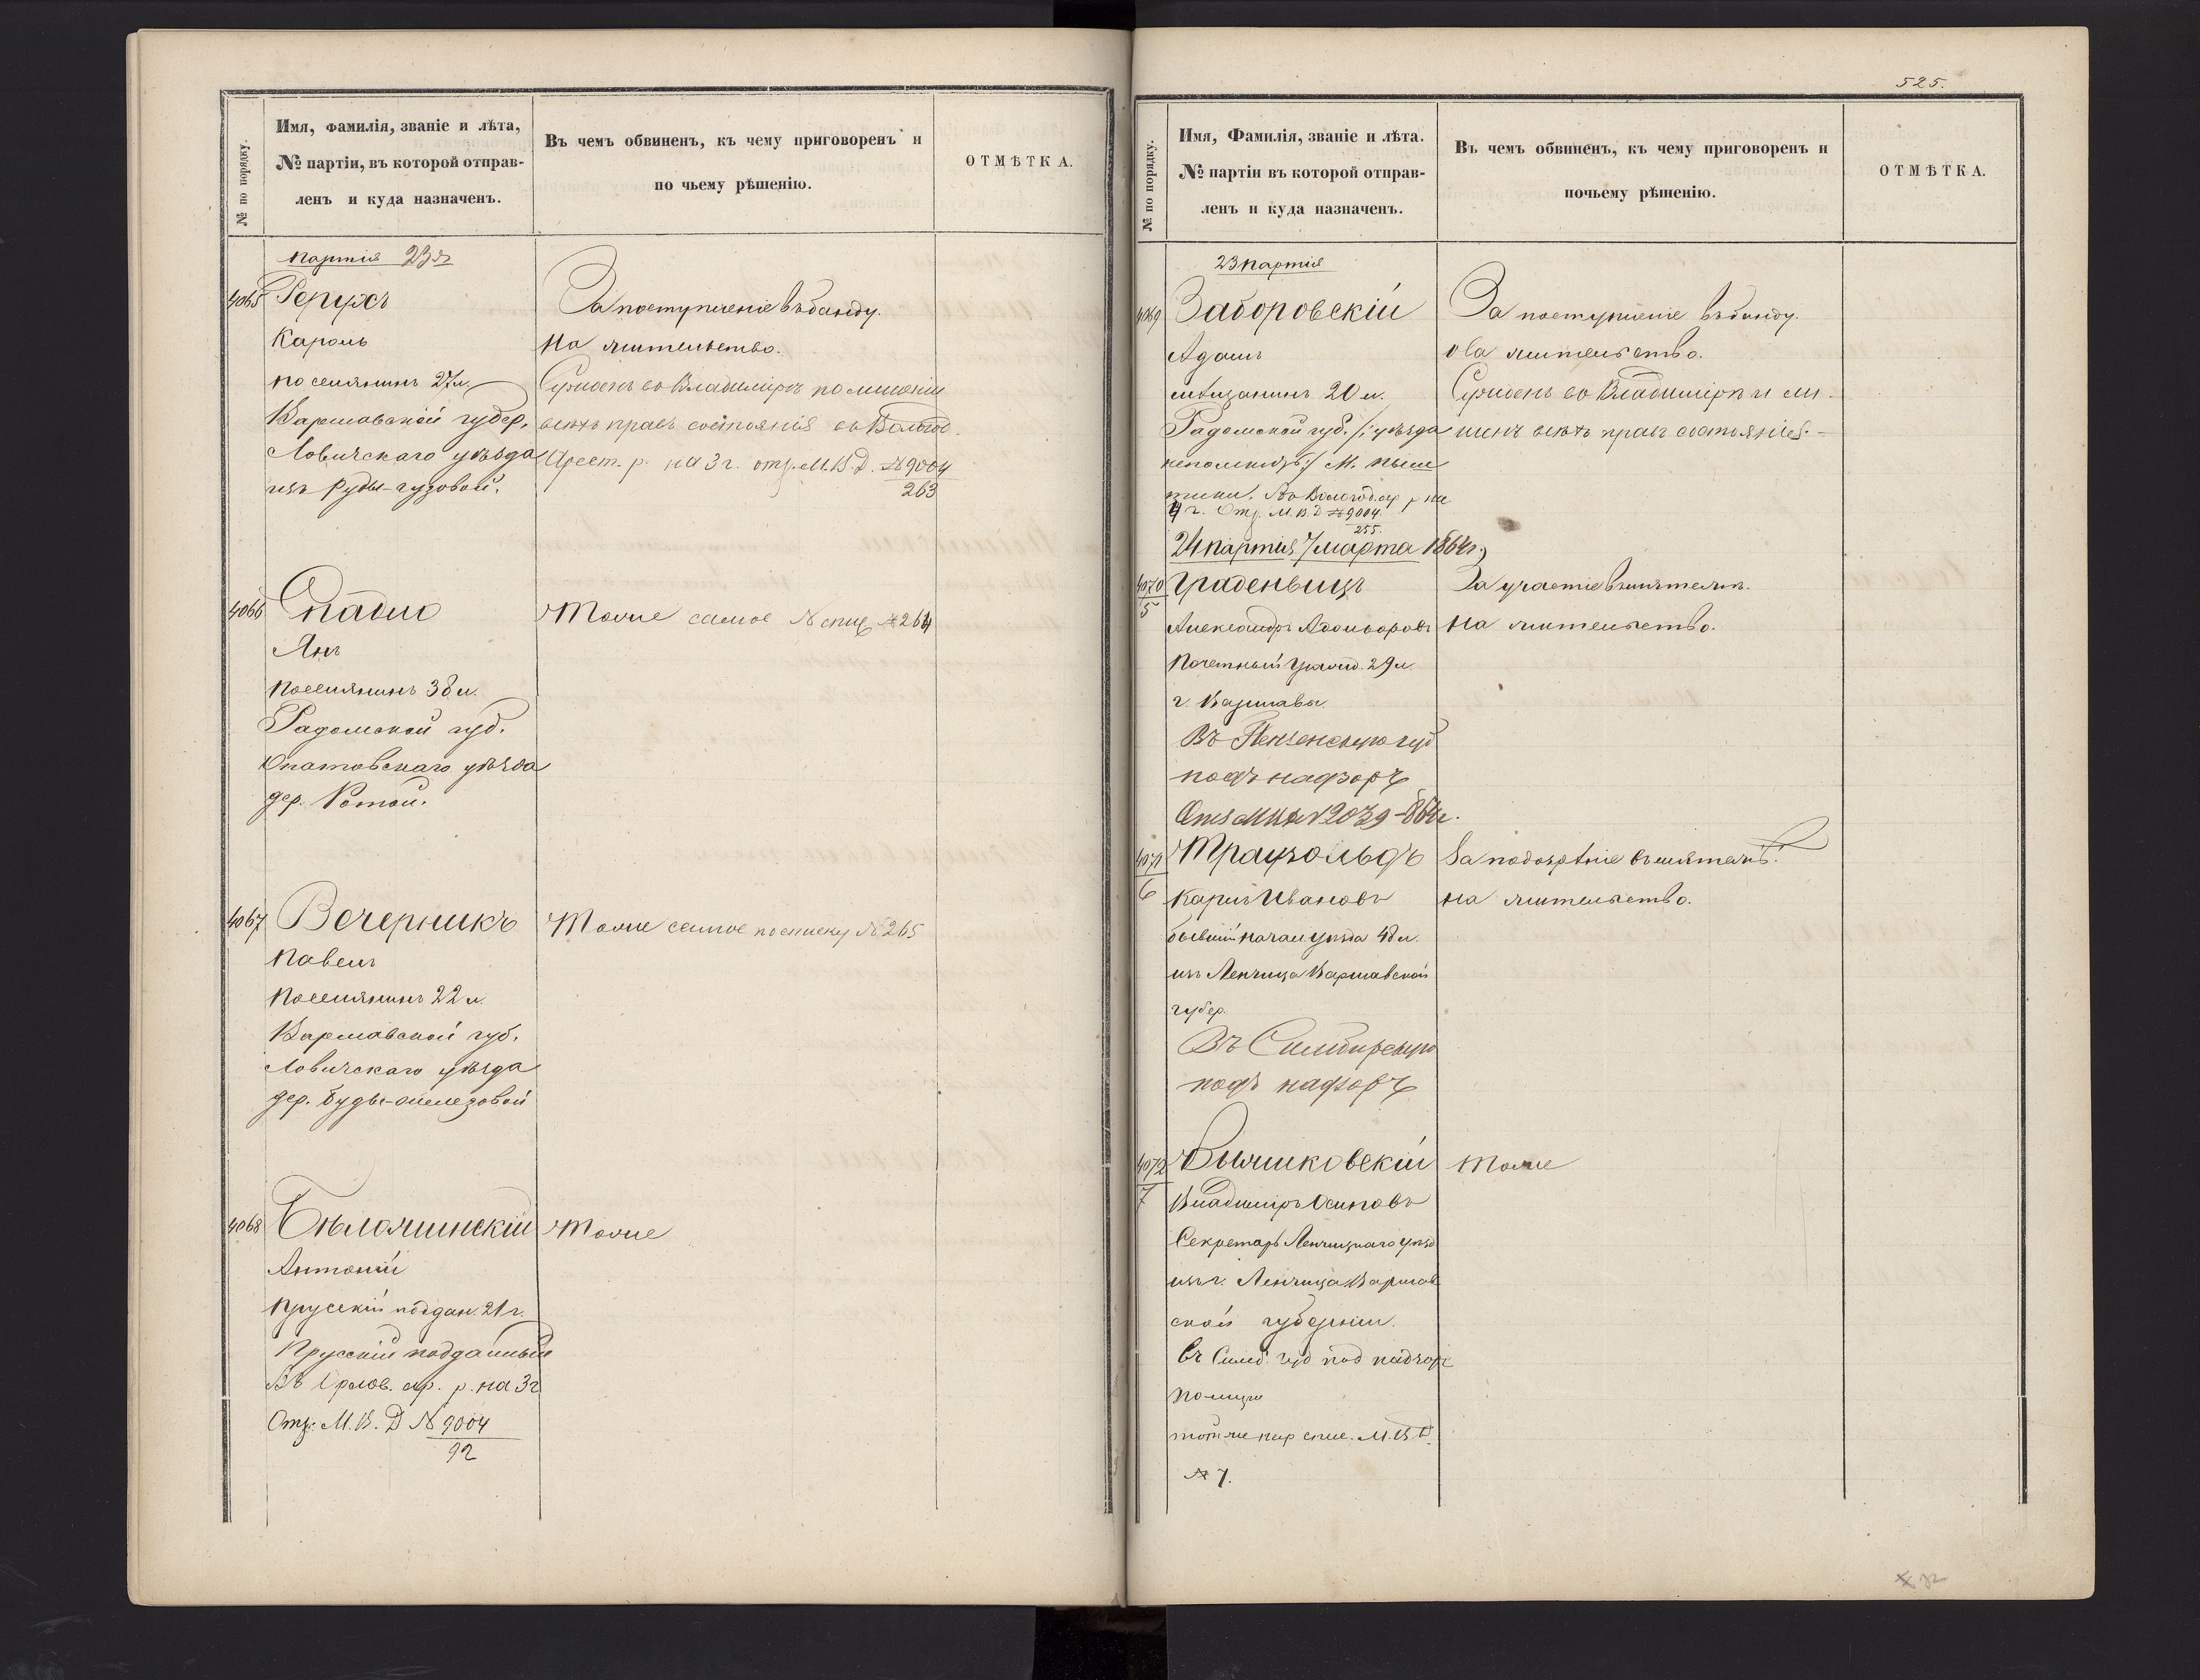 № по порядку.
Имя, фамилія, званіе и лѣта,
№ партіи, въ которой отправ-
ленъ и куда назначенъ.
Въ чемъ обвиненъ, къ чему приговоренъ и
по чьему рѣшенію.
ОТМѢТКА.
партія 23я
4065 Герухъ
За поступленіе въ банду.
Кароль
На жительство.
поселянинъ 27 л.
Сужденъ во Владимірѣ по лишеніи
Варшавской губер.
всѣхъ правъ состоянія въ Вологод.
Ловичскаго уѣзда
Арест. р. на 3 г. отз. М.В.Д. № 9004
263
изъ Руды-гузовой.
4066 Спадло
Тоже самое № спис № 264
Янъ
Поселянинъ 38 л.
Радомской губ.
Опатовскаго уѣзда
дер.
4067 Вечерникъ
Тоже самое по списку № 265
Павелъ
Поселянинъ 22 л.
Варшавской губ.
Ловичскаго уѣзда
дер. Буды-
4068 Бѣложинскій
Тоже
Антоній
Прусскій поддан. 21 г.
Прусскій подданный
Въ Орлов. ар. р. на 3 г
Отз. М.В.Д № 9004
92
525.
№ по порядку.
Имя, Фамилія, званіе и лѣта.
№ партіи въ которой отправ-
ленъ и куда назначенъ.
Въ чемъ обвиненъ, къ чему приговоренъ и
почьему рѣшенію.
ОТМѢТКА.
23 партія
4069 Заборовскій
За поступленіе въ банду.
Адамъ
На жительство.
мѣщанинъ 20 л.
Сужденъ во Владимірѣ и ли-
Радомской губ. /: уѣзда
шенъ всѣхъ правъ состоянія. -
:/ М.
Въ Вологод. ар р на
4 г. Отз. М.В.Д № 9004.
255.
24 партія 7 марта 1864 г.
4070 Граденвицъ
За участіе въ мятежѣ.
5
Александръ
На жительство.
Почетный Гражд. 29 л.
г. Варшавы.
Въ Пензенскую губ
подъ надзоръ
4071 Траузольдъ
За подозрѣніе въ мятежѣ.
6
Карлъ Ивановъ
На жительство.
бывшій начал. уѣзда 48 л.
изъ Ленчица Варшавской
губер.
Въ Симбирскую
подъ надзоръ
4072
Тоже
7
Владиміръ Осиповъ
Секретарь Ленчицкаго уѣзд
изъ г. Ленчица Варшав
ской губерніи.
въ Симб. губ под надзор
полиціи
М.В.Д.
№ 7.